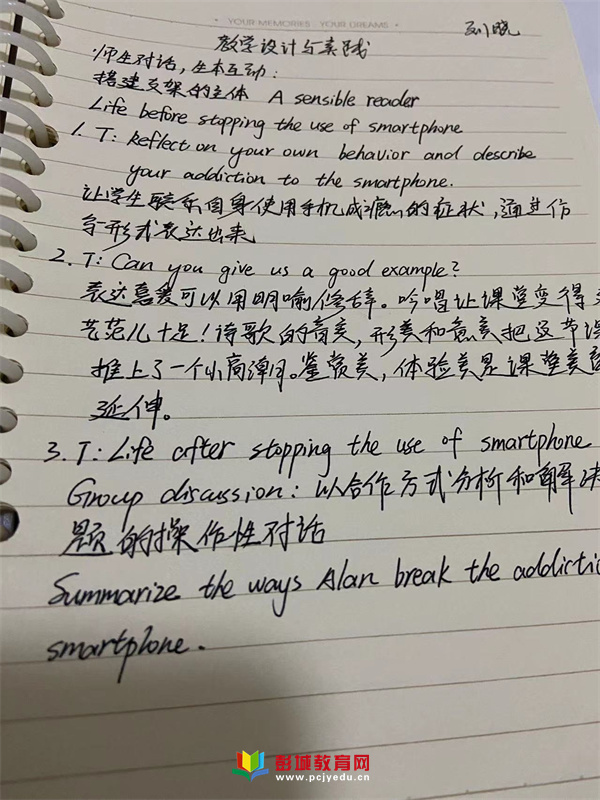 YOUR MEMORIES · YOUR DREAMS
刘晓
教学设计与实践
·师生对话,生本互动:
搭建支架的主体 A sensible reader
Life before stopping the use of smartphone
1. T: Reflect on your own behavior and describe
your addiction to the smartphone.
让学生联系自身使用手机成瘾的症状,通过仿
写形式表达出来
2. T: Can you give us a good example?
表达喜爱可以用明喻修辞。吟唱让课堂变得文
艺范儿十足!诗歌的音美,形美和意美把这节课
推上了一个小高潮。鉴赏美,体验美是课堂美育
延伸。
3. T: Life after stopping the use of smartphone
Group discussion: 以合作方式分析和解决
题的操作性对话
Summarize the ways Alan break the addictio
smartphone.
彭城教育网
www.pcjyedu.cn